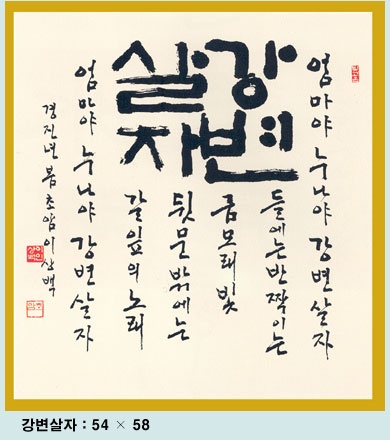 강변
살자
엄마야 누나야 강변 살자
들에는 반짝이는
금모래 빛
뒷문 밖에는
갈잎의 노래
엄마야 누나야 강변 살자
경진년 봄 초암 이상백
강변살자 : 54 × 58